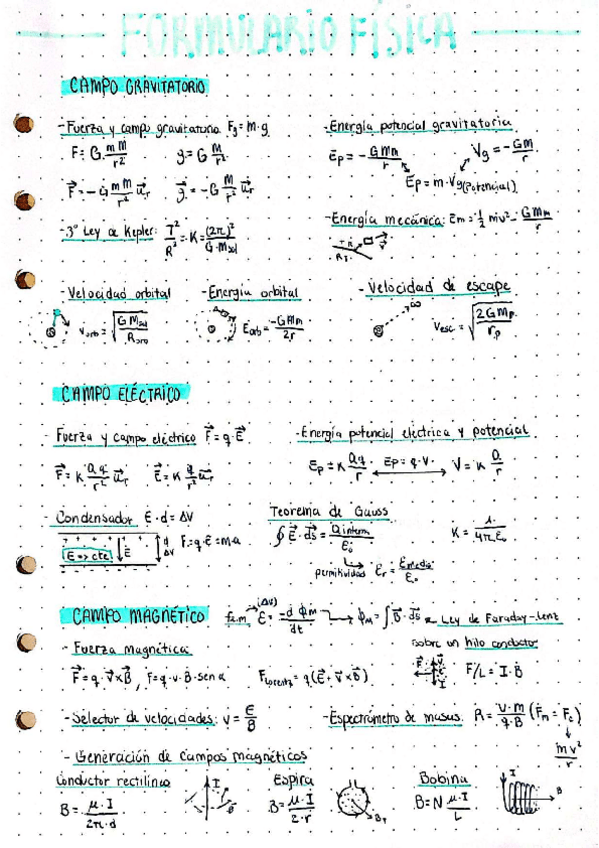 FORMULARIO FÍSICA
CAMPO GRAVITATORIO
- Fuerza y campo gravitatorio Fg = m·g
F = G · mM/r²    g = G M/r²
F⃗ = -G mM/r² u⃗r    g⃗ = -G M/r² u⃗r
- Energía potencial gravitatoria
Ep = - GMm/r    Vg = - GM/r
Ep = m·Vg (potencial)
- 3º Ley de Kepler: T²/R³ = K = (2π)²/G·Msol
- Energía mecánica: Em = ½ mv² - GMm/r
RT
- Velocidad orbital
Vorb = √(GMsol/Rorb)
- Energía orbital
Eorb = -GMm/2r
- Velocidad de escape
Vesc = √(2GMp/rp)
CAMPO ELÉCTRICO
Fuerza y campo eléctrico F⃗ = q·E⃗
F⃗ = K Q·q/r² u⃗r    E⃗ = K q/r² u⃗r
- Energía potencial eléctrica y potencial
Ep = K Q·q/r    Ep = q·V    V = K Q/r
- Condensador E·d = ΔV
E => cte    E⃗    d    ΔV    F = q·E = m·a
Teorema de Gauss
∮ E⃗ · ds⃗ = Qintern/ε₀
permitividad εr = εmedio/ε₀
K = 1/4πε₀
CAMPO MAGNÉTICO    f.e.m (ΔV) ε = -d ϕM/dt    ϕM = ∫ B⃗ · ds⃗    Ley de Faraday-Lenz
- Fuerza magnética
F⃗ = q · v⃗ x B⃗, F = q·v·B·sen α    FLorentz = q(E⃗ + v⃗ x B⃗)
sobre un hilo conductor
F/L = I·B
- Selector de velocidades: v = E/B
- Espectrómetro de masas. R = v·m/q·B (Fm = Fc)
mv²/r
- Generación de campos magnéticos
Conductor rectilíneo
B = μ·I/2π·d    I
Espira
B = μ·I/2·r
Bobina
B = N μ·I/L    I    B